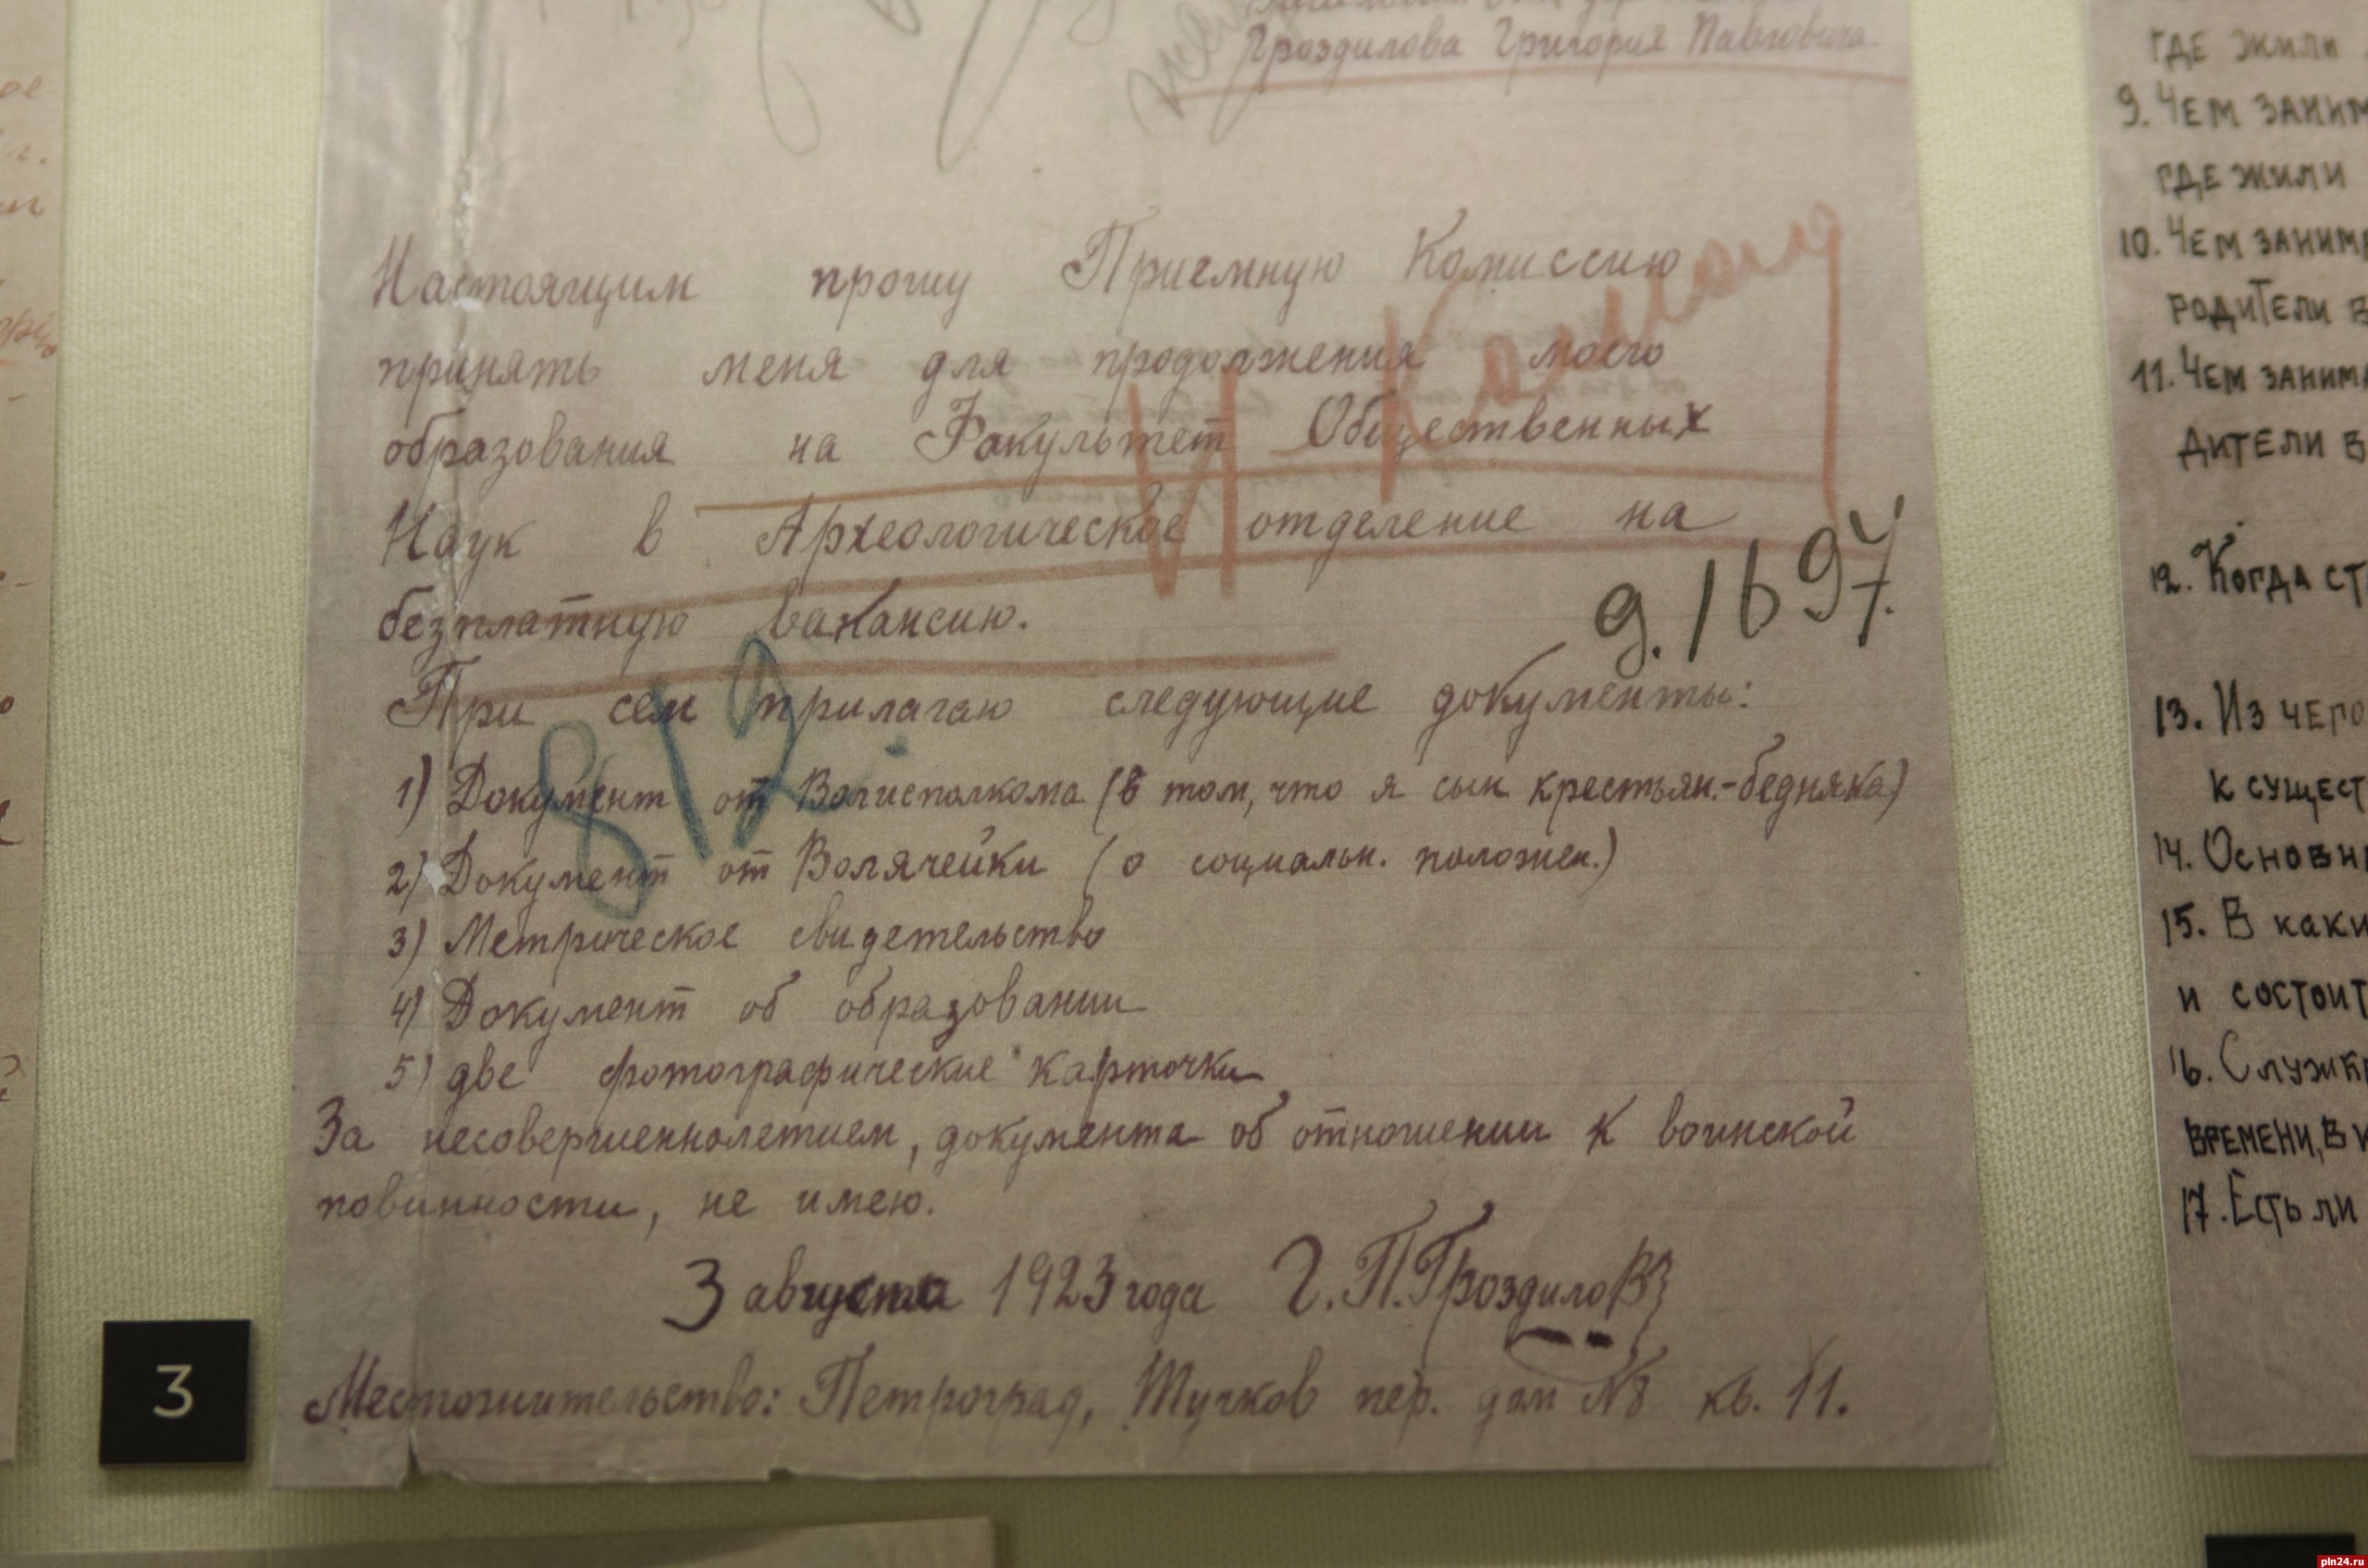 Гроздилова Григория Павловича
Настоящим прошу Приемную Комиссию
принять меня для продолжения моего
образования на Факультет Общественных
Наук в Археологическое отделение на
безплатную вакансию.
д. 1697.
При сем прилагаю следующие документы:
812
1) Документ от Волисполкома (в том, что я сын крестьян.-бедняка)
2) Документ от Волячейки (о социальн. положен.)
3) Метрическое свидетельство
4) Документ об образовании
5) две фотографические карточки
За несовершеннолетием, документа об отношении к воинской
повинности, не имею.
3 августа 1923 года Г. П. Гроздилов
Местожительство: Петроград, Тучков пер. дом №8 кв. 11.
3
где жили
9. Чем заним
где жили
10. Чем заним
родители в
11. Чем занима
дители в
12. Когда ст
13. Из чего
к сущест
14. Основн
15. В каки
и состоит
16. Служи
времени, в
17. Есть ли
pln24.ru